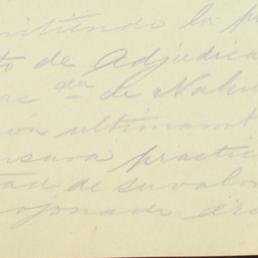 mitiendo la p
to de Adjudica
ac don de Nahu
ón ultimamt
nsura practic
tad de su valo
ojonade dro